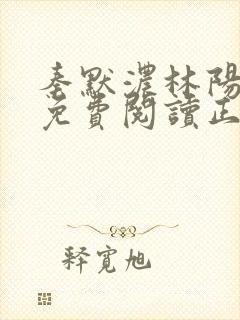 秦默濃林陽
免費閱讀正
釋寬旭